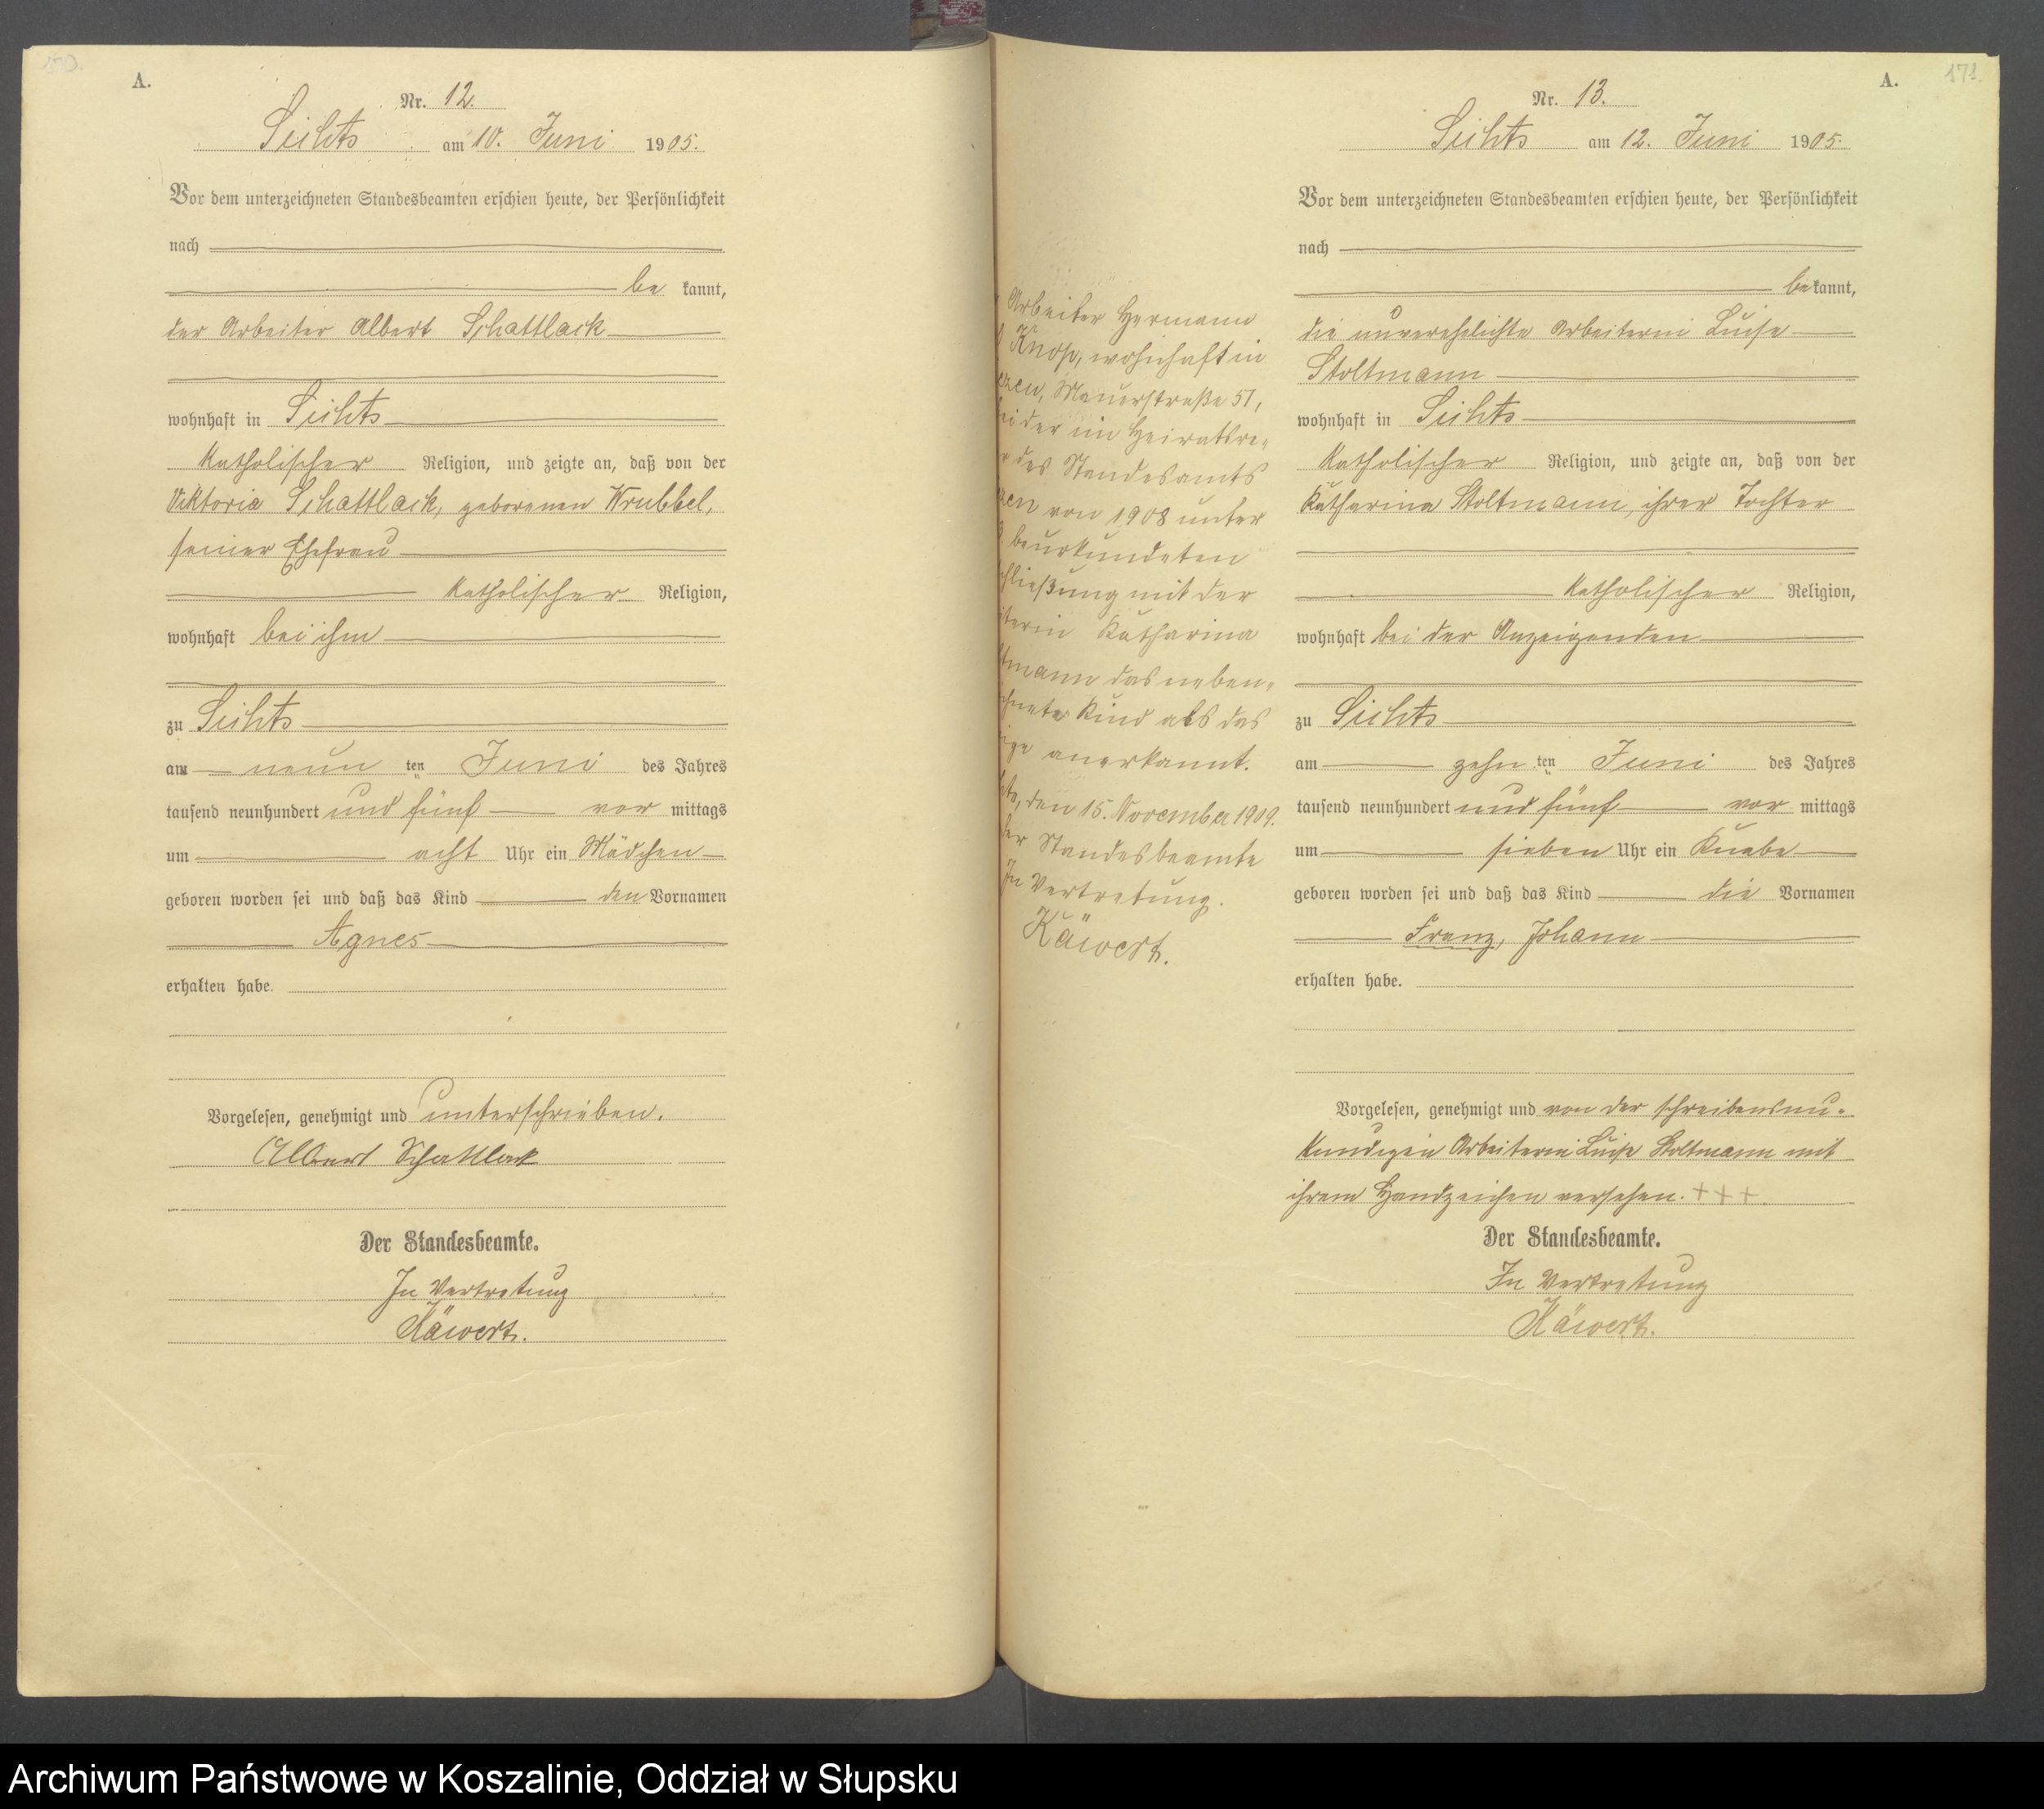 170.
A.
Nr. 12.
Lichts am 10. Juni 1905.
Vor dem unterzeichneten Standesbeamten erschien heute, der Persönlichkeit
nach
be kannt,
der Arbeiter Albert Schattlack
wohnhaft in Lichts
katholischer Religion, und zeigte an, daß von der
Viktoria Schattlack, geborenen Wrubbel,
seiner Ehefrau
katholischer Religion,
wohnhaft bei ihm
zu Lichts
am neun ten Juni des Jahres
tausend neunhundert und fünf vor mittags
um acht Uhr ein Mädchen
geboren worden sei und daß das Kind den Vornamen
Agnes
erhalten habe.
Vorgelesen, genehmigt und unterschrieben.
Albert Schattlack
Der Standesbeamte.
In Vertretung
Käwert.
171.
A.
Nr. 13.
Lichts am 12. Juni 1905.
Vor dem unterzeichneten Standesbeamten erschien heute, der Persönlichkeit
nach
be kannt,
die unverehelichte Arbeiterin Luise
Stoltmann
wohnhaft in Lichts
katholischer Religion, und zeigte an, daß von der
Katharina Stoltmann, ihrer Tochter
katholischer Religion,
wohnhaft bei der Anzeigenden
zu Lichts
am zehn ten Juni des Jahres
tausend neunhundert und fünf vor mittags
um sieben Uhr ein Knabe
geboren worden sei und daß das Kind die Vornamen
Franz, Johann
erhalten habe.
Vorgelesen, genehmigt und von der schreibensun-
kundigen Arbeiterin Luise Stoltmann mit
ihrem Handzeichen versehen. +++.
Der Standesbeamte.
In Vertretung
Käwert.
Arbeiter Hermann
Knop, wohnhaft in
Mauerstraße 51,
der im Heiratsre-
des Standesamts
von 1908 unter
beurkundeten
schließung mit der
Katharina
tmann das neben-
Kind als das
anerkannt.
den 15. November 1909.
Standesbeamte
In Vertretung.
Käwert.
Archiwum Państwowe w Koszalinie, Oddział w Słupsku